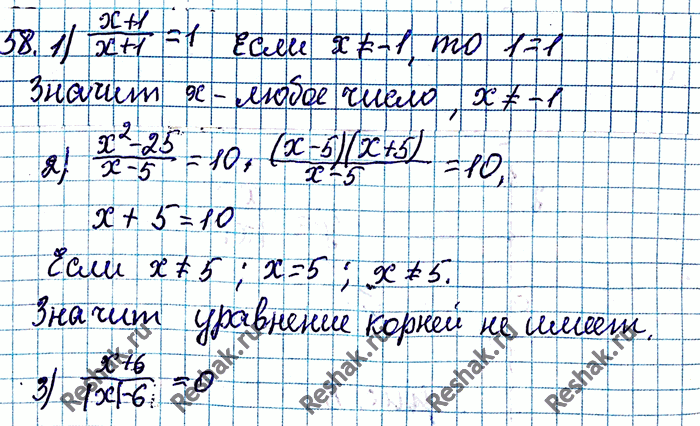 58. 1) (x+1)/(x+1) = 1 Если x ≠ -1, то 1=1
Значит x - любое число, x ≠ -1
2) (x²-25)/(x-5) = 10, ((x-5)(x+5))/(x-5) = 10,
x + 5 = 10
Если x ≠ 5 ; x = 5 ; x ≠ 5.
Значит уравнение корней не имеет.
3) (x+6)/(|x|-6) = 0
Reshak.ru Reshak.ru Reshak.ru Reshak.ru